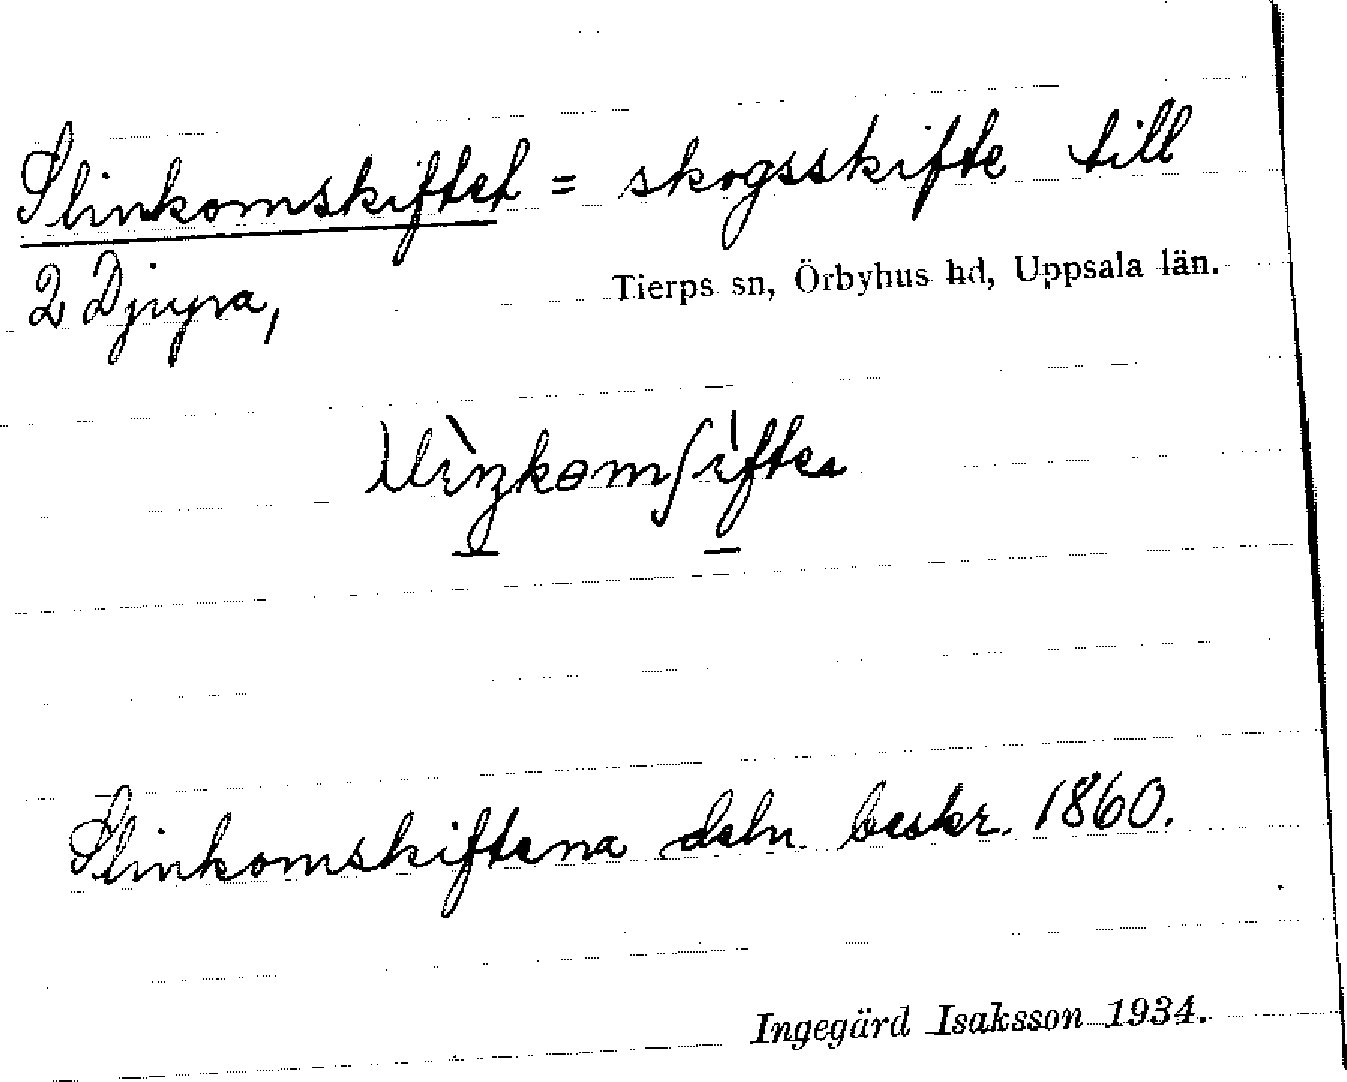 Slinkomskiftet = skogsskifte till
2 Djupa,
Tierps sn, Örbyhus hd, Uppsala län.
Slinkomskiftena deln. beskr. 1860.
Ingegärd Isaksson 1934.